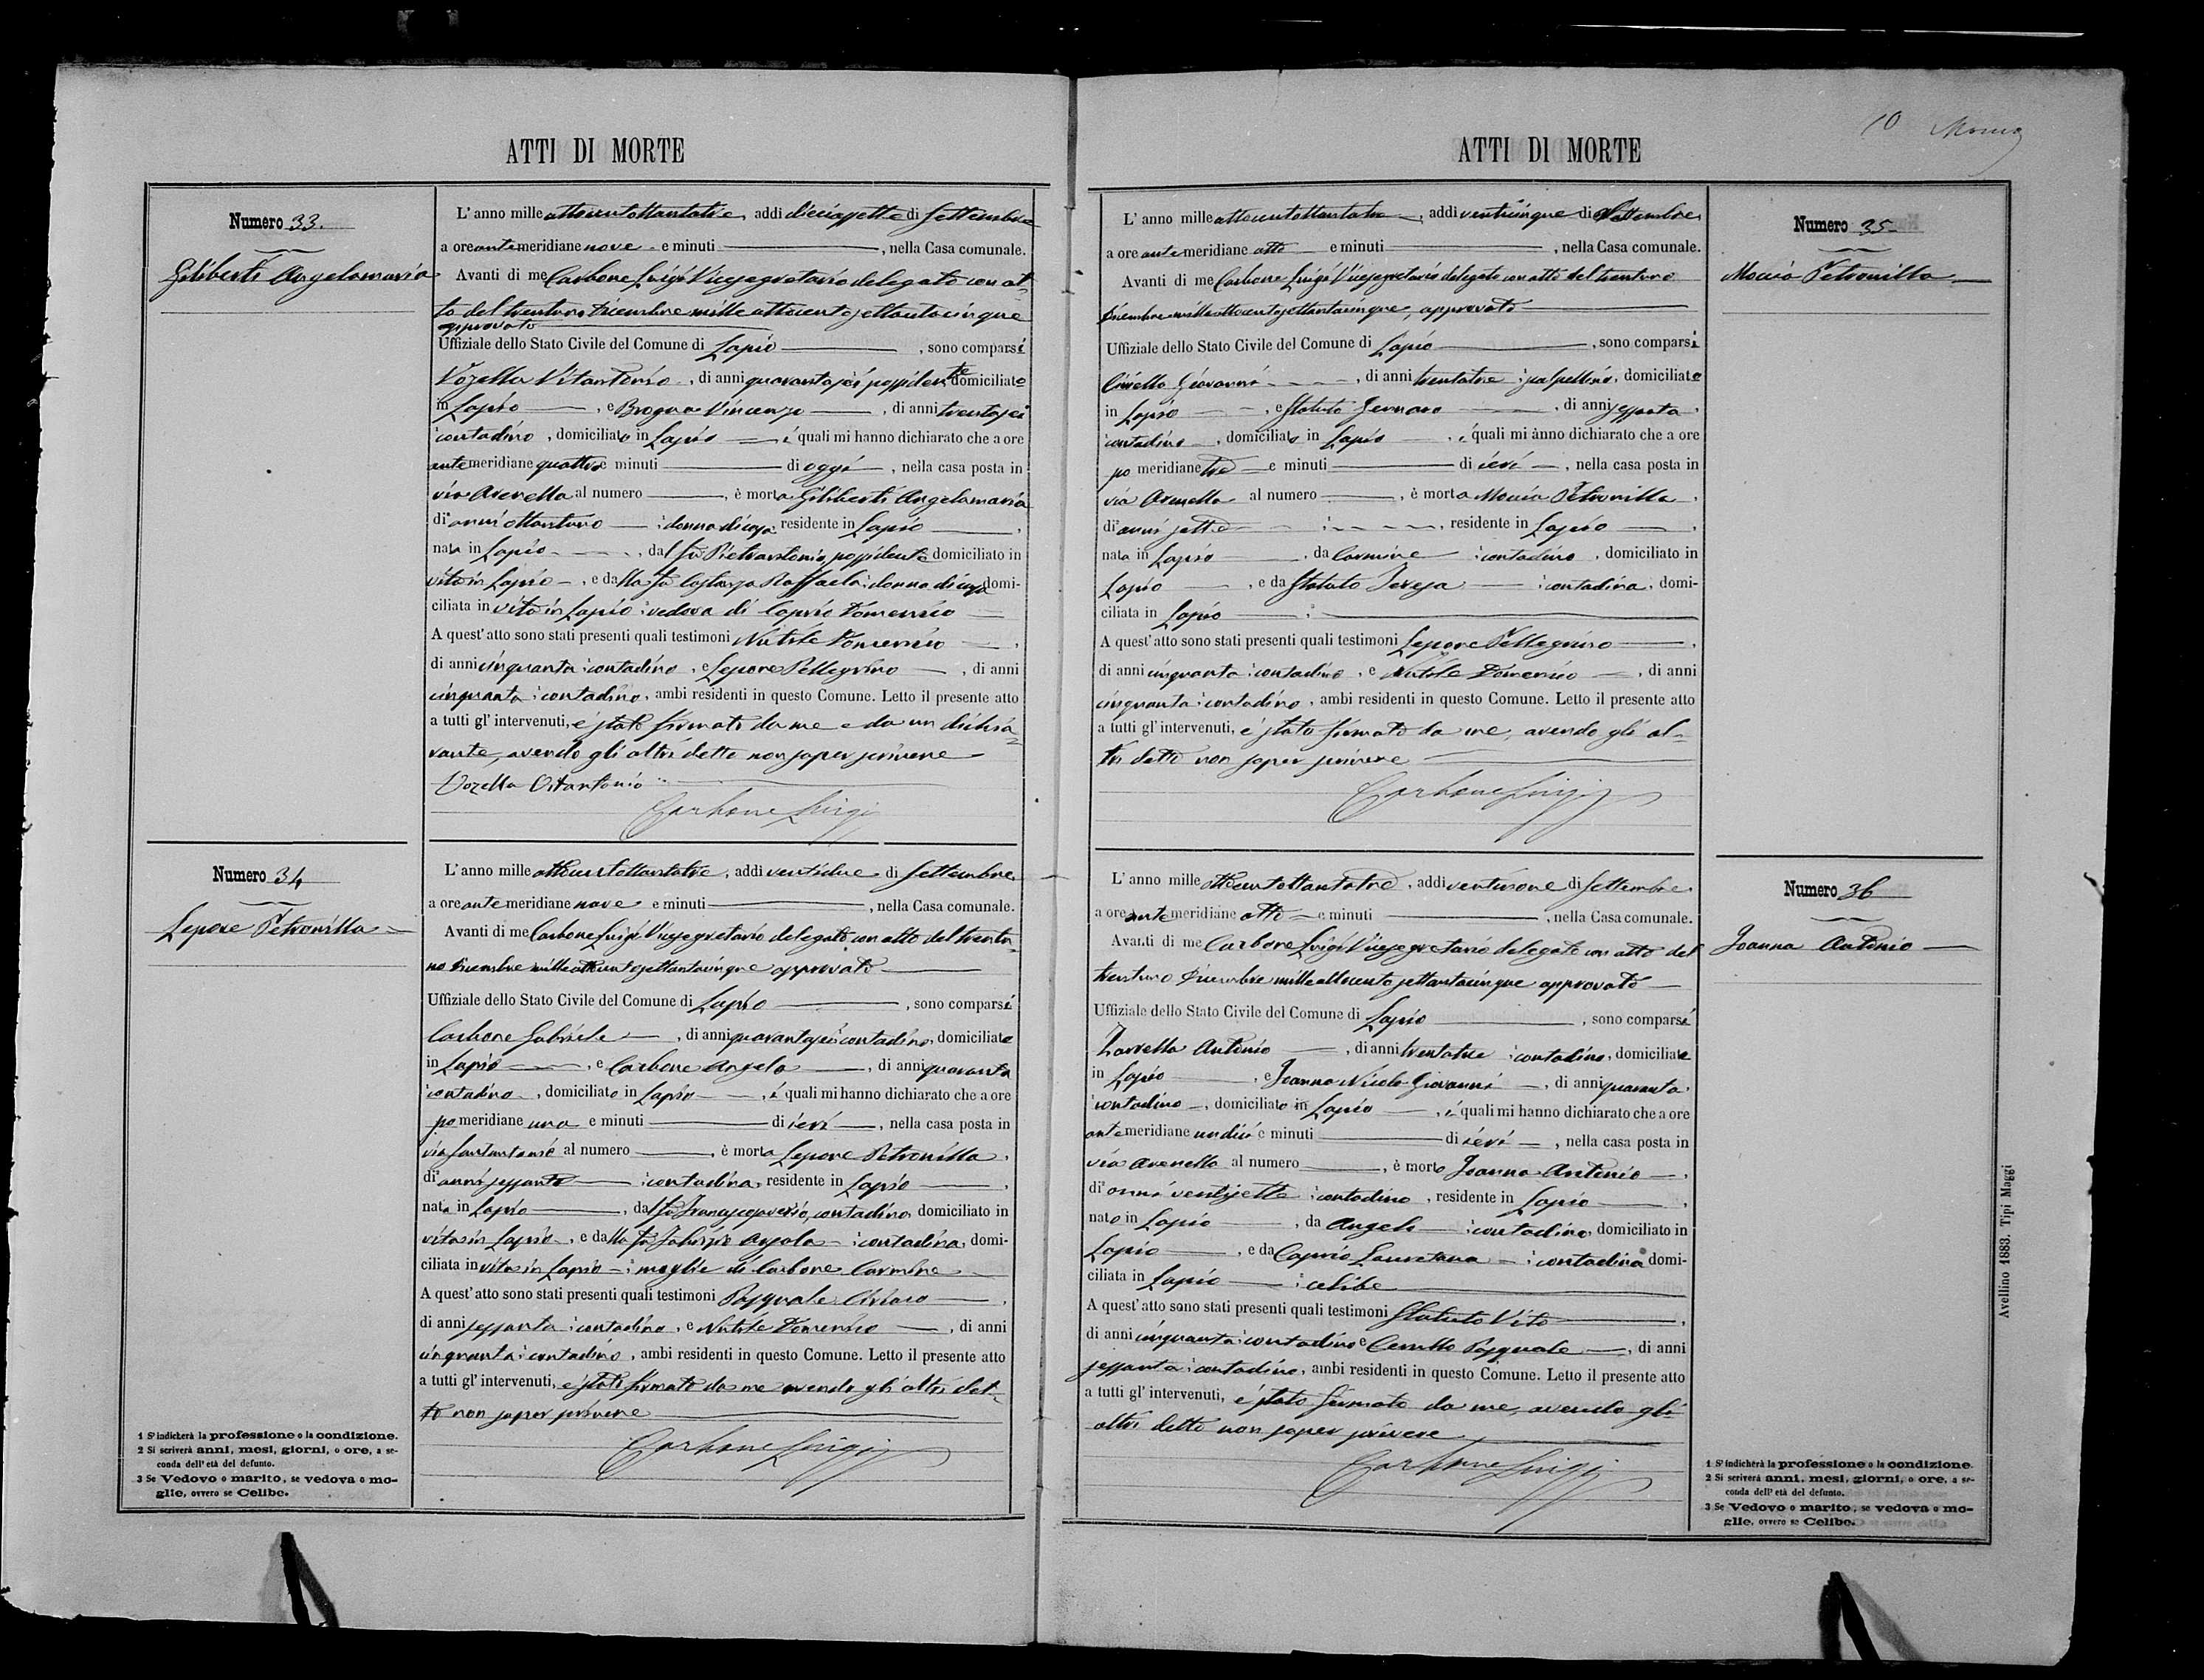 ATTI DI MORTE
Numero 33.
Giliberti Angelamaria
L'anno milleottocentottantatre, addì diciassette di Settembre
a ore antemeridiane nove e minuti, nella Casa comunale.
Avanti di me Carbone Luigi Vicesegretario delegato con at-
to del trentuno Dicembre mille ottocentosettantacinque
approvato
Uffiziale dello Stato Civile del Comune di Lapio, sono comparsi
Vozella Vitantonio, di anni quarantasei possidente domiciliato
in Lapio, e Brogna Vincenzo, di anni trentasei
contadino, domiciliato in Lapio, i quali mi hanno dichiarato che a ore
antemeridiane quattro e minuti di oggi, nella casa posta in
via Arenella al numero, è morta Giliberti Angelamaria
di anni ottantuno donna di casa residente in Lapio,
nata in Lapio, dal fu Pietrantonio, possidente domiciliato in
vita in Lapio, e dalla fu Costanza Raffaela donna di casa domi-
ciliata in vita in Lapio vedova di Caprio Domenico
A quest'atto sono stati presenti quali testimoni Nutile Domenico,
di anni cinquanta contadino, e Lepore Pellegrino, di anni
cinquanta contadino, ambi residenti in questo Comune. Letto il presente atto
a tutti gl'intervenuti, è stato firmato da me e da un dichia-
rante, avendo gli altri detto non saper scrivere
Vozella Vitantonio
Carbone Luigi
Numero 34
Lepore Petronilla
L'anno mille ottocentottantatre, addì ventidue di Settembre
a ore antemeridiane nove e minuti, nella Casa comunale.
Avanti di me Carbone Luigi Vicesegretario delegato con atto del trentu-
no Dicembre mille ottocentosettantacinque approvato
Uffiziale dello Stato Civile del Comune di Lapio, sono comparsi
Carbone Gabriele, di anni quarantasei contadino, domiciliato
in Lapio, e Carbone Angelo, di anni quaranta
contadino, domiciliato in Lapio, i quali mi hanno dichiarato che a ore
pomeridiane una e minuti di ieri, nella casa posta in
via Santantonio al numero, è morta Lepore Petronilla,
di anni sessanta contadina, residente in Lapio,
nata in Lapio, dal fu Francescosaverio, contadino, domiciliato in
vita in Lapio, e dalla fu Angela contadina, domi-
ciliata in vita in Lapio moglie di Carbone Carmine
A quest'atto sono stati presenti quali testimoni Pasquale,
di anni sessanta contadino, e Nutile Domenico, di anni
cinquanta contadino, ambi residenti in questo Comune. Letto il presente atto
a tutti gl'intervenuti, è stato firmato da me avendo gli altri det-
to non saper scrivere
Carbone Luigi
1 S'indicherà la professione o la condizione.
2 Si scriverà anni, mesi, giorni, o ore, a se-
conda dell'età del defunto.
3 Se Vedovo o marito, se vedova o mo-
glie, ovvero se Celibe.
10
ATTI DI MORTE
Numero 35
Moccia Petronilla
L'anno mille ottocentottantatre, addì venticinque di Settembre
a ore antemeridiane otto e minuti, nella Casa comunale.
Avanti di me Carbone Luigi Vicesegretario delegato con atto del trentuno
Dicembre mille ottocentosettantacinque, approvato
Uffiziale dello Stato Civile del Comune di Lapio, sono comparsi
Ciriello Giovanni, di anni trentatre scalpellino, domiciliato
in Lapio, e Statuto Gennaro, di anni sessanta
contadino, domiciliato in Lapio, i quali mi ànno dichiarato che a ore
pomeridiane tre e minuti di ieri, nella casa posta in
via Arenella al numero, è morta Moccia Petronilla,
di anni sette, residente in Lapio,
nata in Lapio, da Carmine contadino, domiciliato in
Lapio, e da Statuto Teresa contadina, domi-
ciliata in Lapio
A quest'atto sono stati presenti quali testimoni Lepore Pellegrino,
di anni cinquanta contadino, e Nutile Domenico, di anni
cinquanta contadino, ambi residenti in questo Comune. Letto il presente atto
a tutti gl'intervenuti, è stato firmato da me, avendo gli al-
tri detto non saper scrivere
Carbone Luigi
Numero 36
Joanna Antonio
L'anno mille ottocentottantatre, addì ventinove di Settembre
a ore antemeridiane otto e minuti, nella Casa comunale.
Avanti di me Carbone Luigi Vicesegretario delegato con atto del
trentuno Dicembre mille ottocentosettantacinque approvato
Uffiziale dello Stato Civile del Comune di Lapio, sono comparsi
Zarrella Antonio, di anni trentatre contadino, domiciliato
in Lapio, e Joanna Nicola Giovanni, di anni quaranta
contadino, domiciliato in Lapio, i quali mi hanno dichiarato che a ore
antemeridiane undici e minuti di ieri, nella casa posta in
via Arenella al numero, è morto Joanna Antonio,
di anni ventisette contadino, residente in Lapio,
nato in Lapio, da Angelo contadino, domiciliato in
Lapio, e da Caprio Lauretana contadina domi-
ciliata in Lapio celibe
A quest'atto sono stati presenti quali testimoni Statuto Vito,
di anni cinquanta contadino e Cerullo Pasquale, di anni
sessanta contadino, ambi residenti in questo Comune. Letto il presente atto
a tutti gl'intervenuti, è stato firmato da me, avendo gli
altri detto non saper scrivere
Carbone Luigi
1 S'indicherà la professione o la condizione.
2 Si scriverà anni, mesi, giorni, o ore, a se-
conda dell'età del defunto.
3 Se Vedovo o marito, se vedova o mo-
glie, ovvero se Celibe.
Avellino 1883. Tipi Maggi